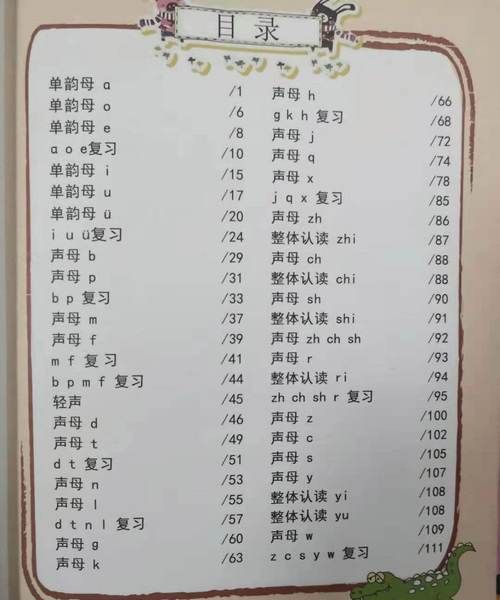 目录
单韵母 a /1
单韵母 o /6
单韵母 e /8
a o e复习 /10
单韵母 i /15
单韵母 u /17
单韵母 ü /20
i u ü复习 /24
声母 b /29
声母 p /31
b p 复习 /33
声母 m /37
声母 f /39
m f 复习 /41
b p m f 复习 /44
轻声 /45
声母 d /46
声母 t /49
d t 复习 /51
声母 n /53
声母 l /55
d t n l 复习 /57
声母 g /60
声母 k /63
声母 h /66
g k h 复习 /68
声母 j /72
声母 q /74
声母 x /78
j q x 复习 /85
声母 zh /86
整体认读 zhi /87
声母 ch /88
整体认读 chi /88
声母 sh /90
整体认读 shi /91
声母 zh ch sh /92
声母 r /93
整体认读 ri /94
zh ch sh r 复习 /95
声母 z /100
声母 c /102
声母 s /105
声母 y /107
整体认读 yi /108
整体认读 yu /108
声母 w /109
z c s y w 复习 /111